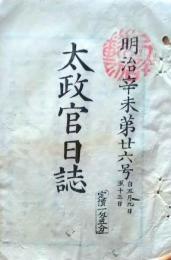 明治辛未第廿六号
自五月九日
至十三日
太政官日誌
定價一匁五分